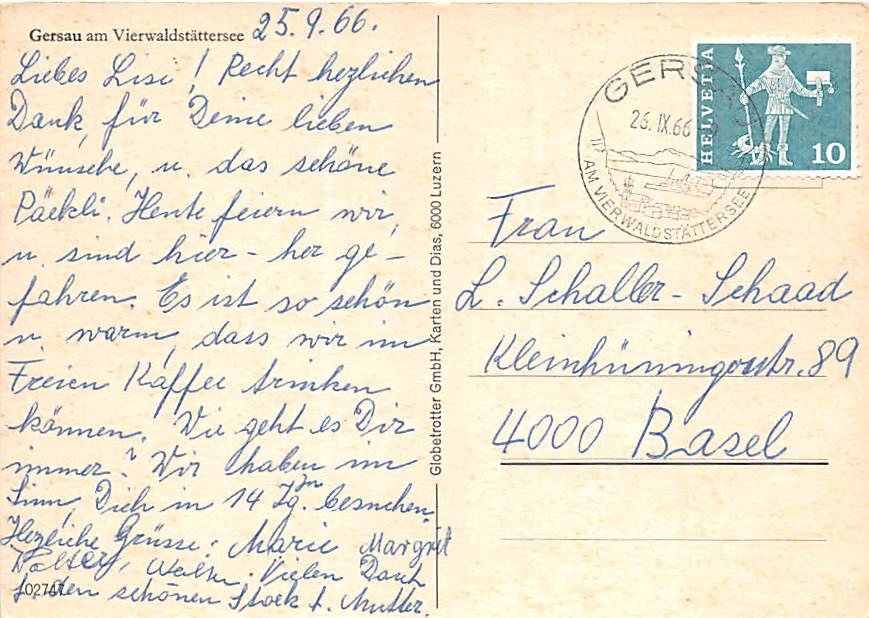 Gersau am Vierwaldstättersee 25.9.66.
Liebes Lisi! Recht herzlichen
Dank, für Deine lieben
Wünsche, u. das schöne
Päckli. Heute feiern wir,
u. sind hier-her ge-
fahren. Es ist so schön
u. warm, dass wir im
Freien Kaffee trinken
können. Wie geht es Dir
immer? Wir haben im
Sinn, Dich in 14 Tg. besuchen.
Herzliche Grüsse: Marie Margrit
Walter, Vielen Dank
f. den schönen Stock f. Mutter.
02747
Globetrotter GmbH, Karten und Dias, 6000 Luzern
GERSAU
26.IX.66
AM VIERWALDSTÄTTERSEE
HELVETIA
10
Frau
L. Schaller-Schaad
Kleinhüningerstr. 89
4000 Basel